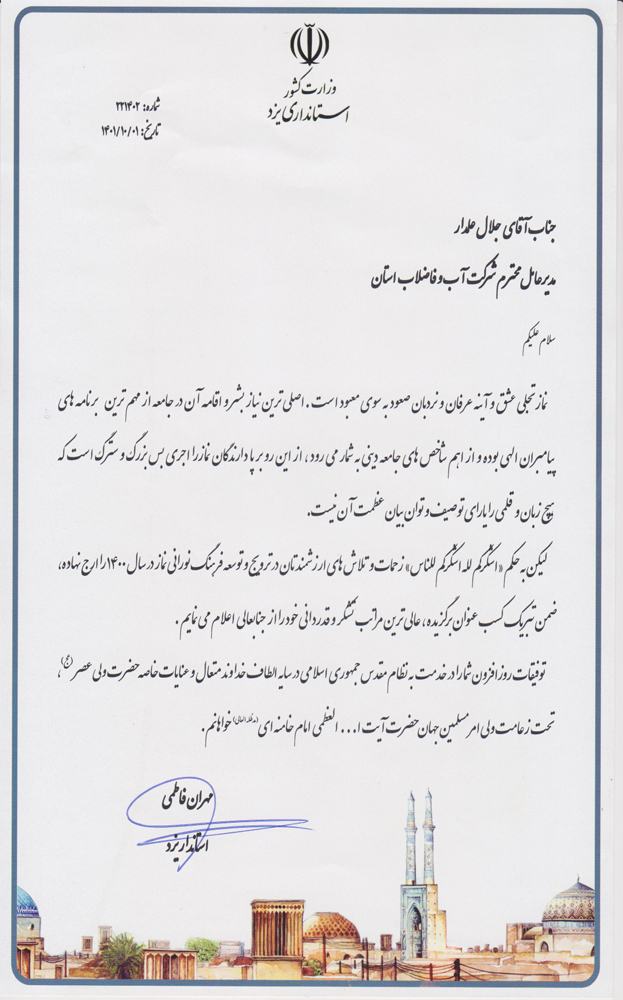 وزارت کشور
استانداری یزد
شماره: ۲۲۱۴۰۲
تاریخ: ۱۴۰۱/۱۰/۰۱
جناب آقای جلال علمدار
مدیرعامل محترم شرکت آب و فاضلاب استان
سلام علیکم
نماز تجلی عشق و آینه عرفان و نردبان صعود به سوی معبود است. اصلی ترین نیاز بشر و اقامه آن در جامعه از مهم ترین برنامه های
پیامبران الهی بوده و از اهم شاخص های جامعه دینی به شمار می رود، از این رو برپا دارندگان نماز را اجری بس بزرگ و سترگ است که
هیچ زبان و قلمی را یارای توصیف و توان بیان عظمت آن نیست.
لیکن به حکم «اشکرکم لله اشکرکم للناس» زحمات و تلاش های ارزشمندتان در ترویج و توسعه فرهنگ نورانی نماز در سال ۱۴۰۰ را ارج نهاده،
ضمن تبریک کسب عنوان برگزیده، عالی ترین مراتب تشکر و قدردانی خود را از جنابعالی اعلام می نمایم.
توفیقات روز افزون شما را در خدمت به نظام مقدس جمهوری اسلامی در سایه الطاف خداوند متعال و عنایات خاصه حضرت ولی عصر (عج)،
تحت زعامت ولی امر مسلمین جهان حضرت آیت ا... العظمی امام خامنه ای (مدظله العالی) خواهانم.
مهران فاطمی
استاندار یزد